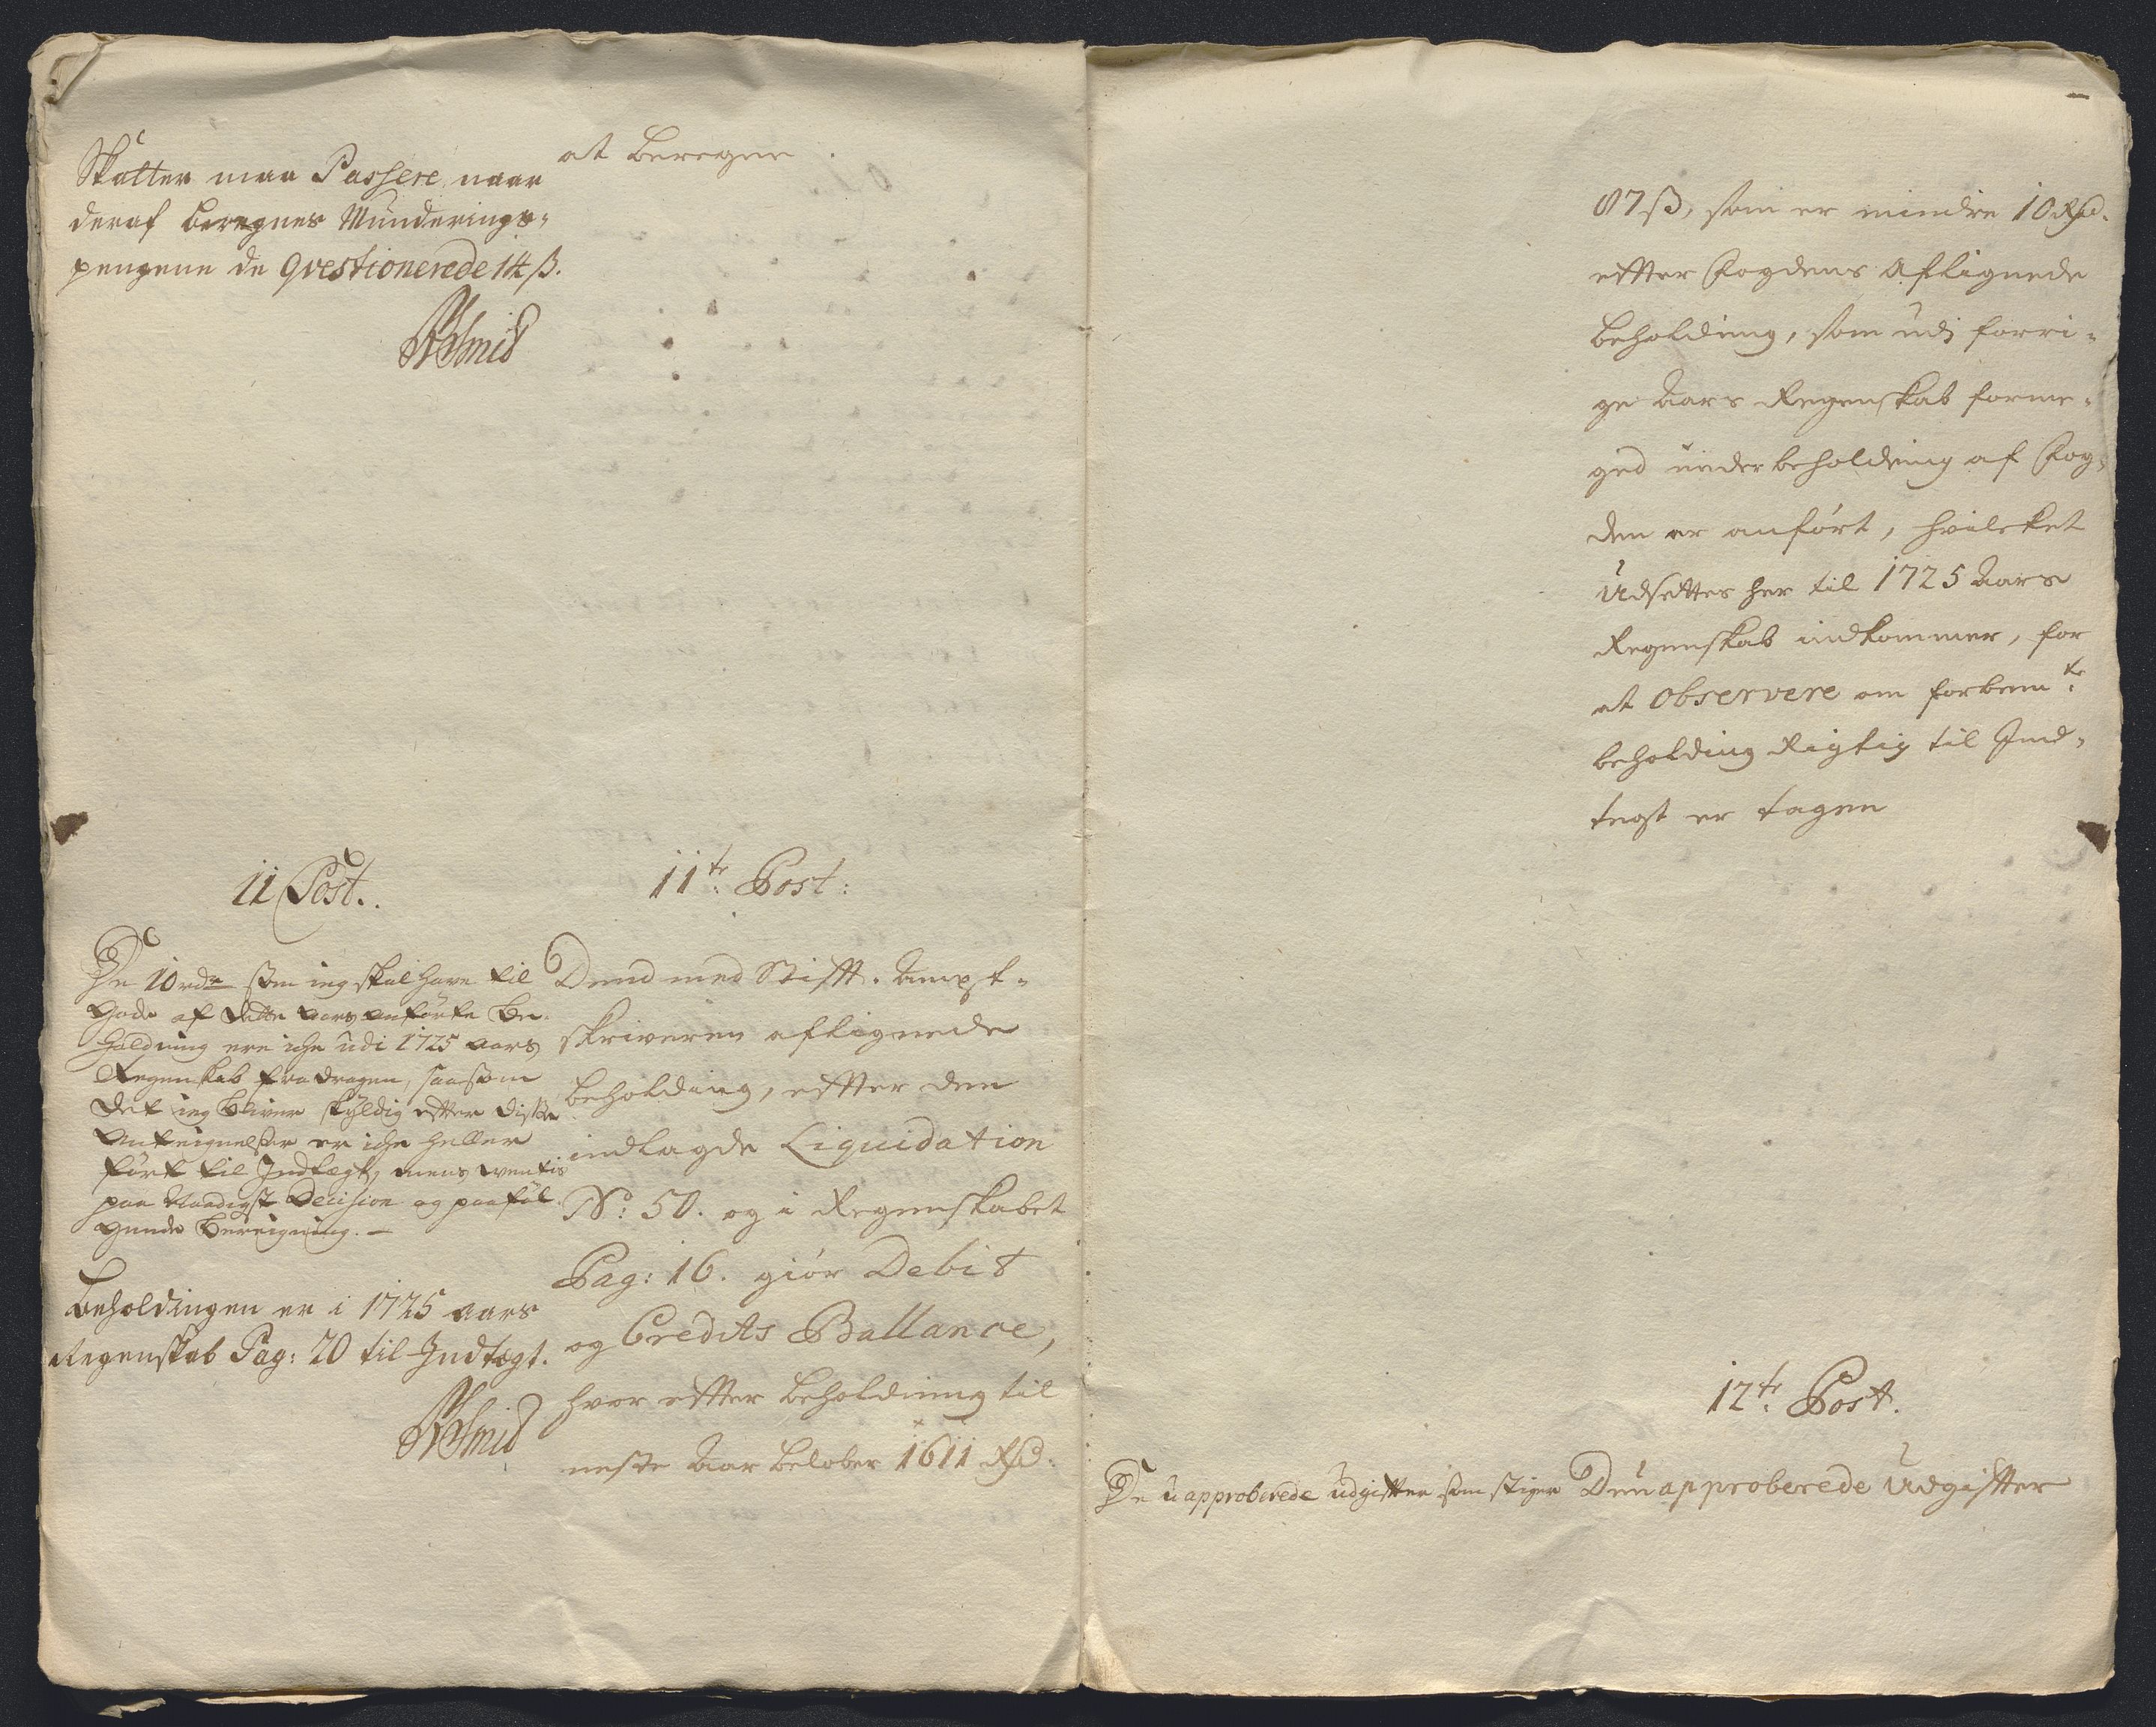 Skatter maa Passere naar
deraf beregnes Munderings-
pengene de qvestionerede 14 ß.
Smid
at beregne.
11 Post.
De 10 rdr som ieg skal have til
gode af dette aars anførte be-
holdning ere iche udi 1725 aars
Regenskab fradragen, saasom
det ieg bliver skyldig effter disse
Anteignelser er iche heller
ført til Indtægt, mens ventis
paa Naadigst Decision og paaføl-
gende bereigning.
Beholdingen er i 1725 aars
Regenskab Pag: 20 til Indtægt.
Smid
11te Post:
Dend med Stifft-Ampt-
skriveren aflignede
beholding, effter den
indlagde Liquidation
No: 50. og i Regenskabet
Pag: 16. giör Debit
og Credits Ballance,
hvor effter beholdning til
neste Aar beløber 1611 Rd:
87 ß, som er mindre 10 Rd.
effter Fogdens aflignede
beholding, som udj forri-
ge Aars Regenskab forme-
get under beholdning af Fog-
den er anført, hvilcket
Udsettes her til 1725 Aars
Regenskab indkommer, for
at observere om forbemte:
beholding Rigtig til Ind-
tegt er tagen
12te Post.
De uapproberede udgiffter som stiger
De uapproberede Udgiffter